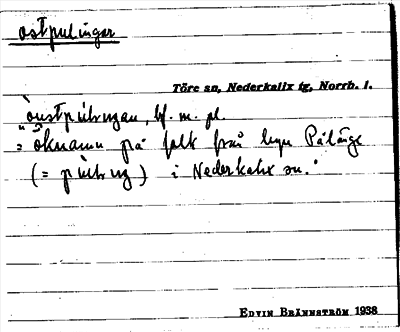 ostpulingar
Töre sn, Nederkalix tg, Norrb. l.
bf. m. pl.
= öknamn på folk från byn Pålänge
(= ) i Nederkalix sn.
EDVIN BRÄNNSTRÖM 1938